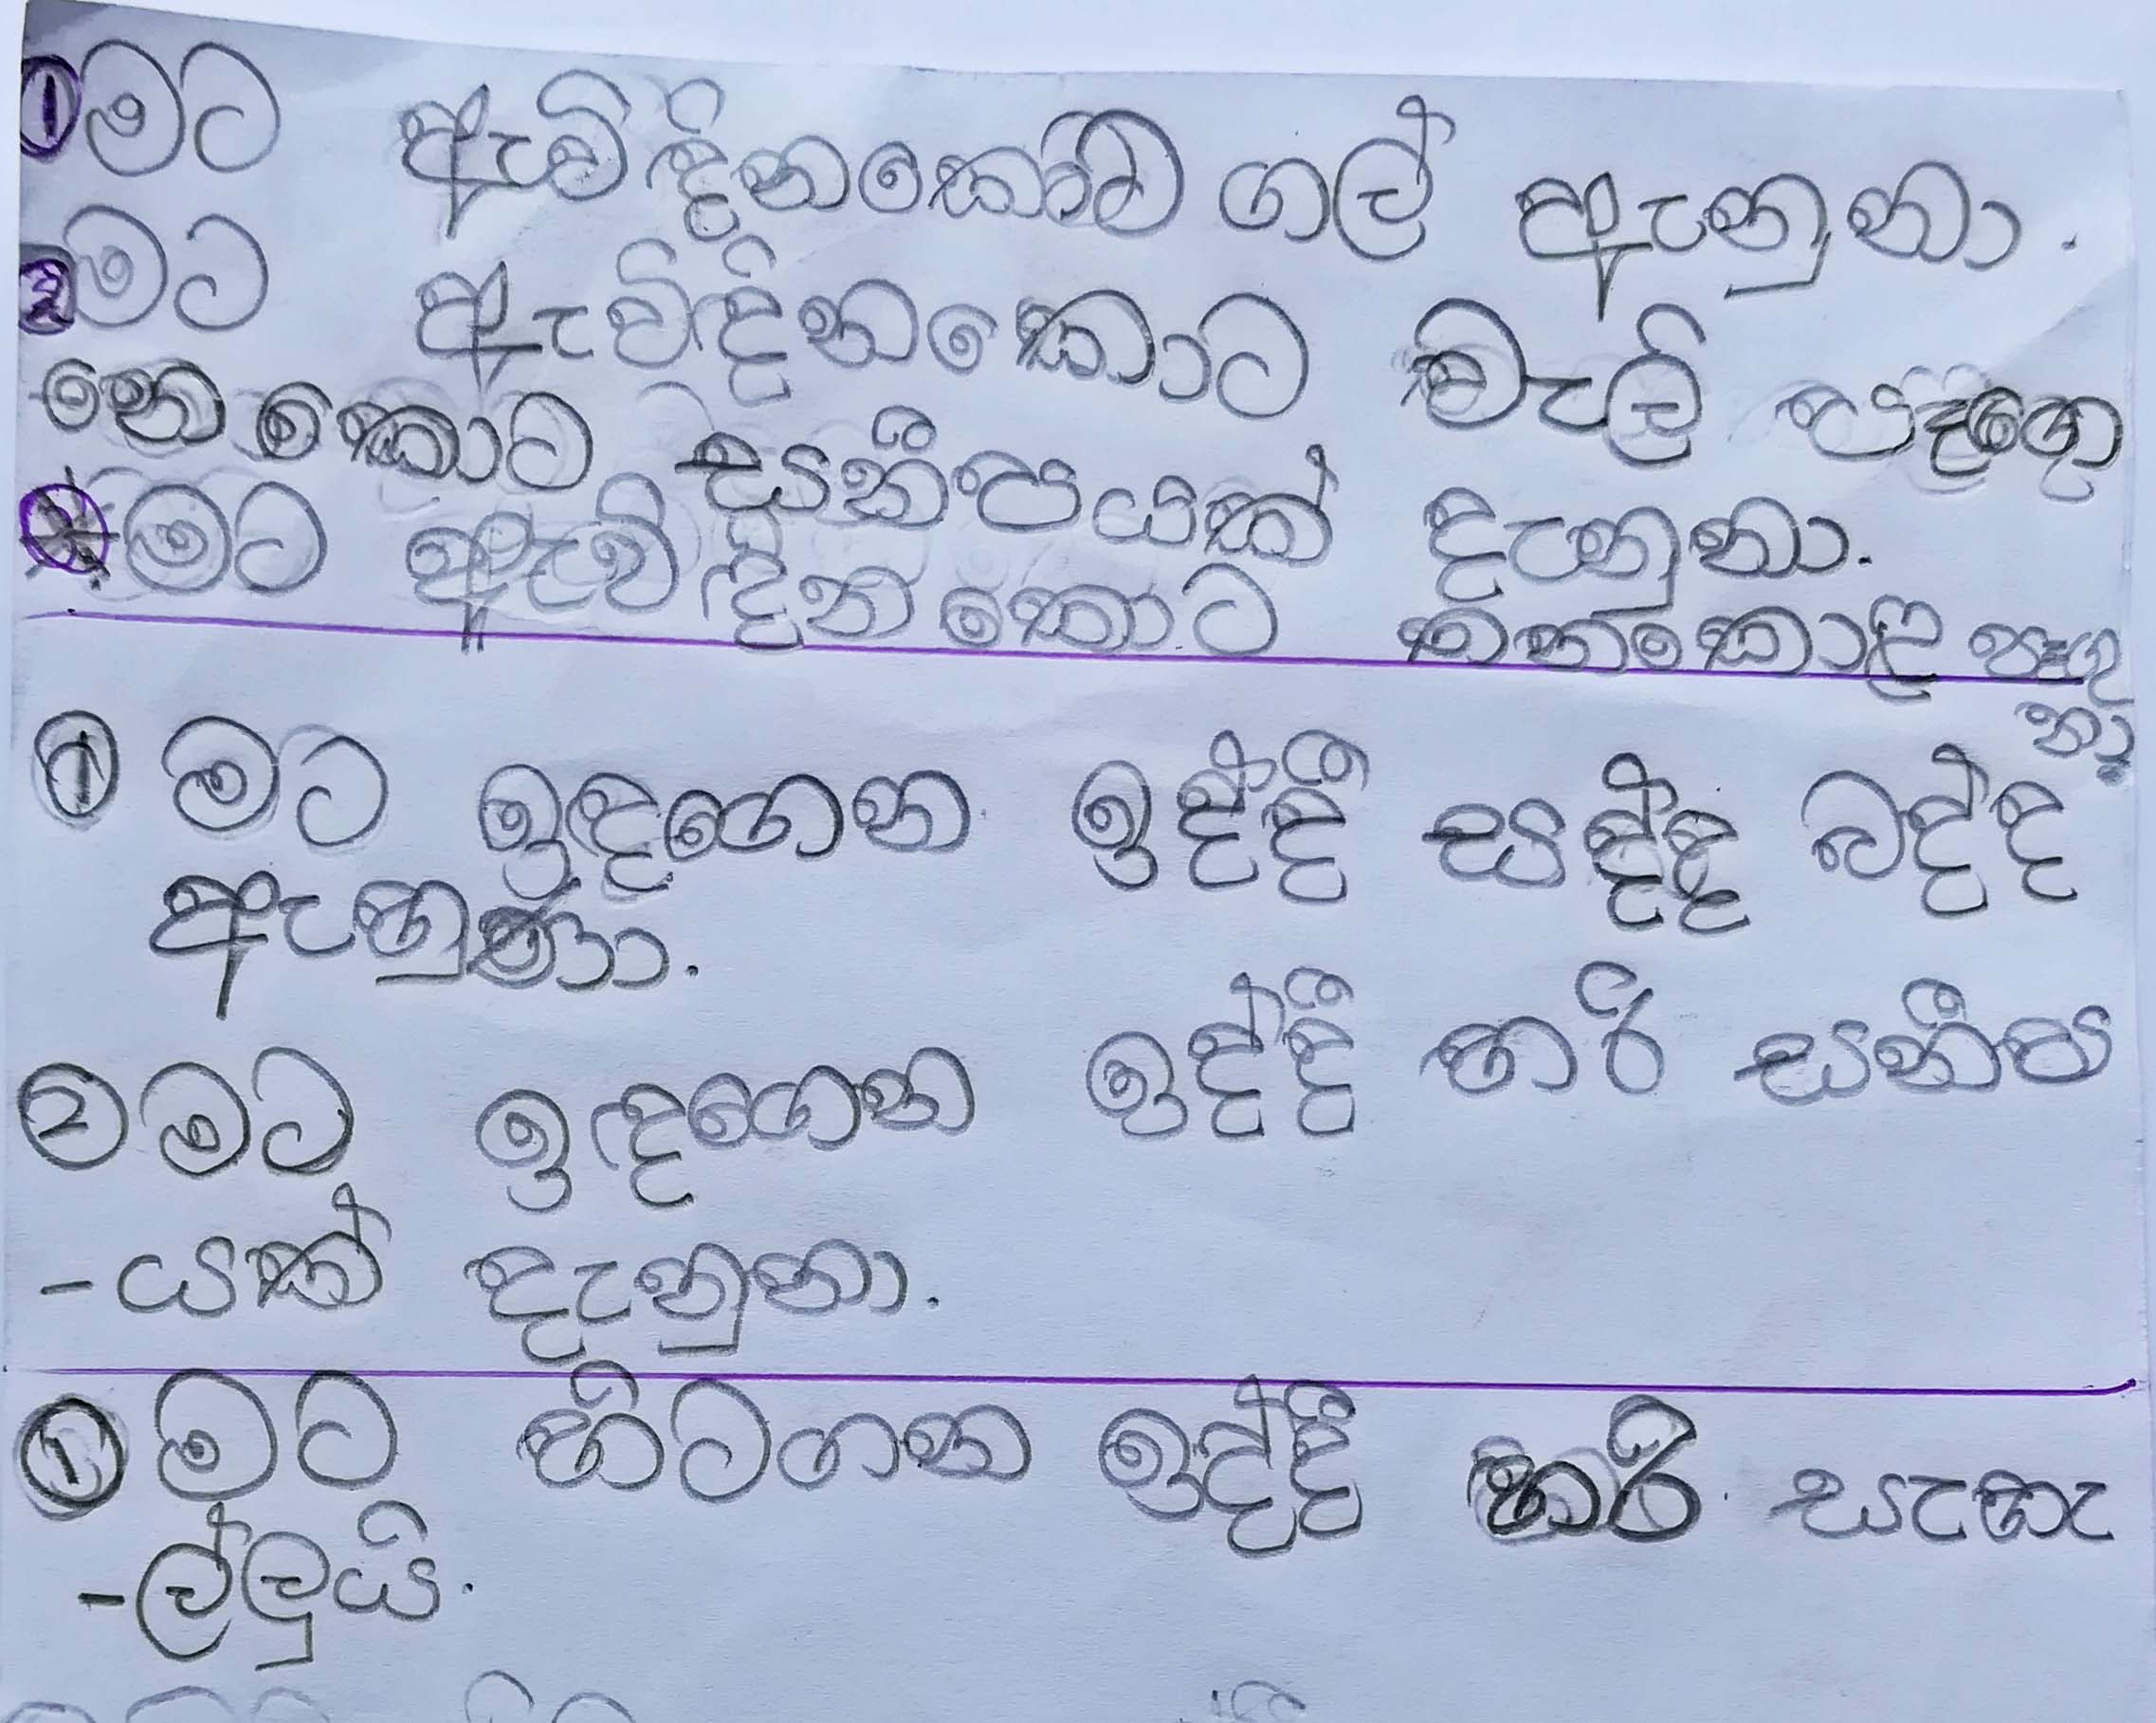 ① මට ඇවිදිනකොට ගල් ඇනුනා.
2 මට ඇවිදිනකොට වැලි පෑගෙ
නකොට සනීපයක් දැනුනා.
මට ඇවිදින කොට තනකොළ පෑගු
නා.
① මට ඉඳගෙන ඉද්දී සද්ද බද්ද
ඇහුණා.
② මට ඉඳගෙන ඉද්දී හරි සනීප
-යක් දැනුනා.
① මට හිටගන ඉද්දී හරි සැහැ
-ල්ලුයි.